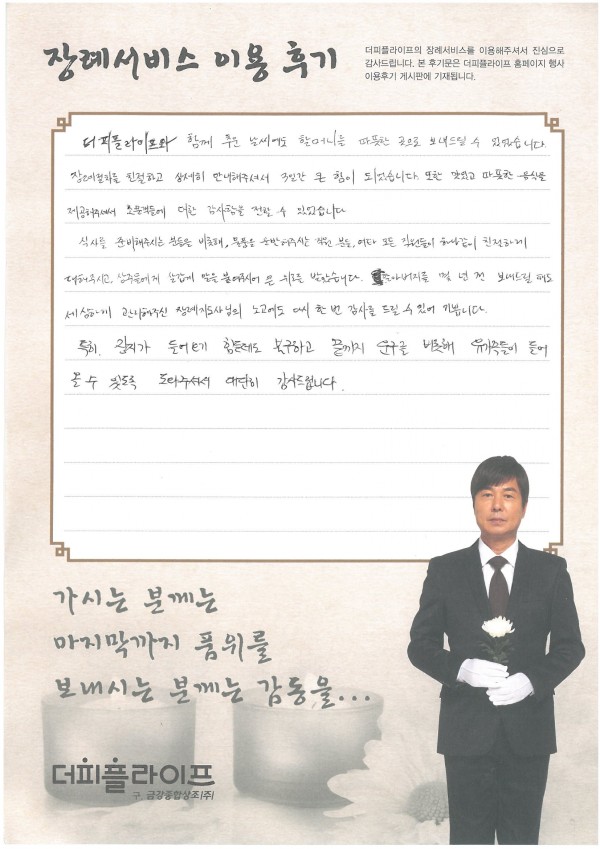 장례서비스 이용 후기
더피플라이프의 장례서비스를 이용해주셔서 진심으로
감사드립니다. 본 후기문은 더피플라이프 홈페이지 행사
이용후기 게시판에 기재됩니다.
더피플라이프와 함께 추운 날씨에도 할머니를 따뜻한 곳으로 보내드릴 수 있었습니다.
장례절차를 친절하고 상세히 안내해주셔서 3일간 큰 힘이 되었습니다. 또한 맛있고 따뜻한 음식을
제공해주셔서 조문객들에 대한 감사함을 전할 수 있었습니다
식사를 준비해주시는 분들을 비롯해, 물품을 운반해주시는 직원 분들, 여타 모든 직원들이 하나같이 친절하게
대해주시고, 상주들에게 살갑게 말을 붙여주시어 큰 위로를 받았습니다. 할아버지를 몇 년 전 보내드릴 때도
세심하게 관리해주신 장례지도사님의 노고에도 다시 한 번 감사를 드릴 수 있어 기쁩니다.
특히, 장지가 들어가기 힘든데도 불구하고 끝까지 운구를 비롯해 유가족들이 들어
올 수 있도록 도와주셔서 대단히 감사드립니다.
가시는 분께는
마지막까지 품위를
보내시는 분께는 감동을...
더피플라이프
구. 금강종합상조(주)